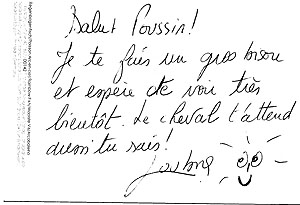 Salut Poussin!
Je te fais un gros bisou
et espère te voir très
bientôt. Le cheval t'attend
aussi tu sais!